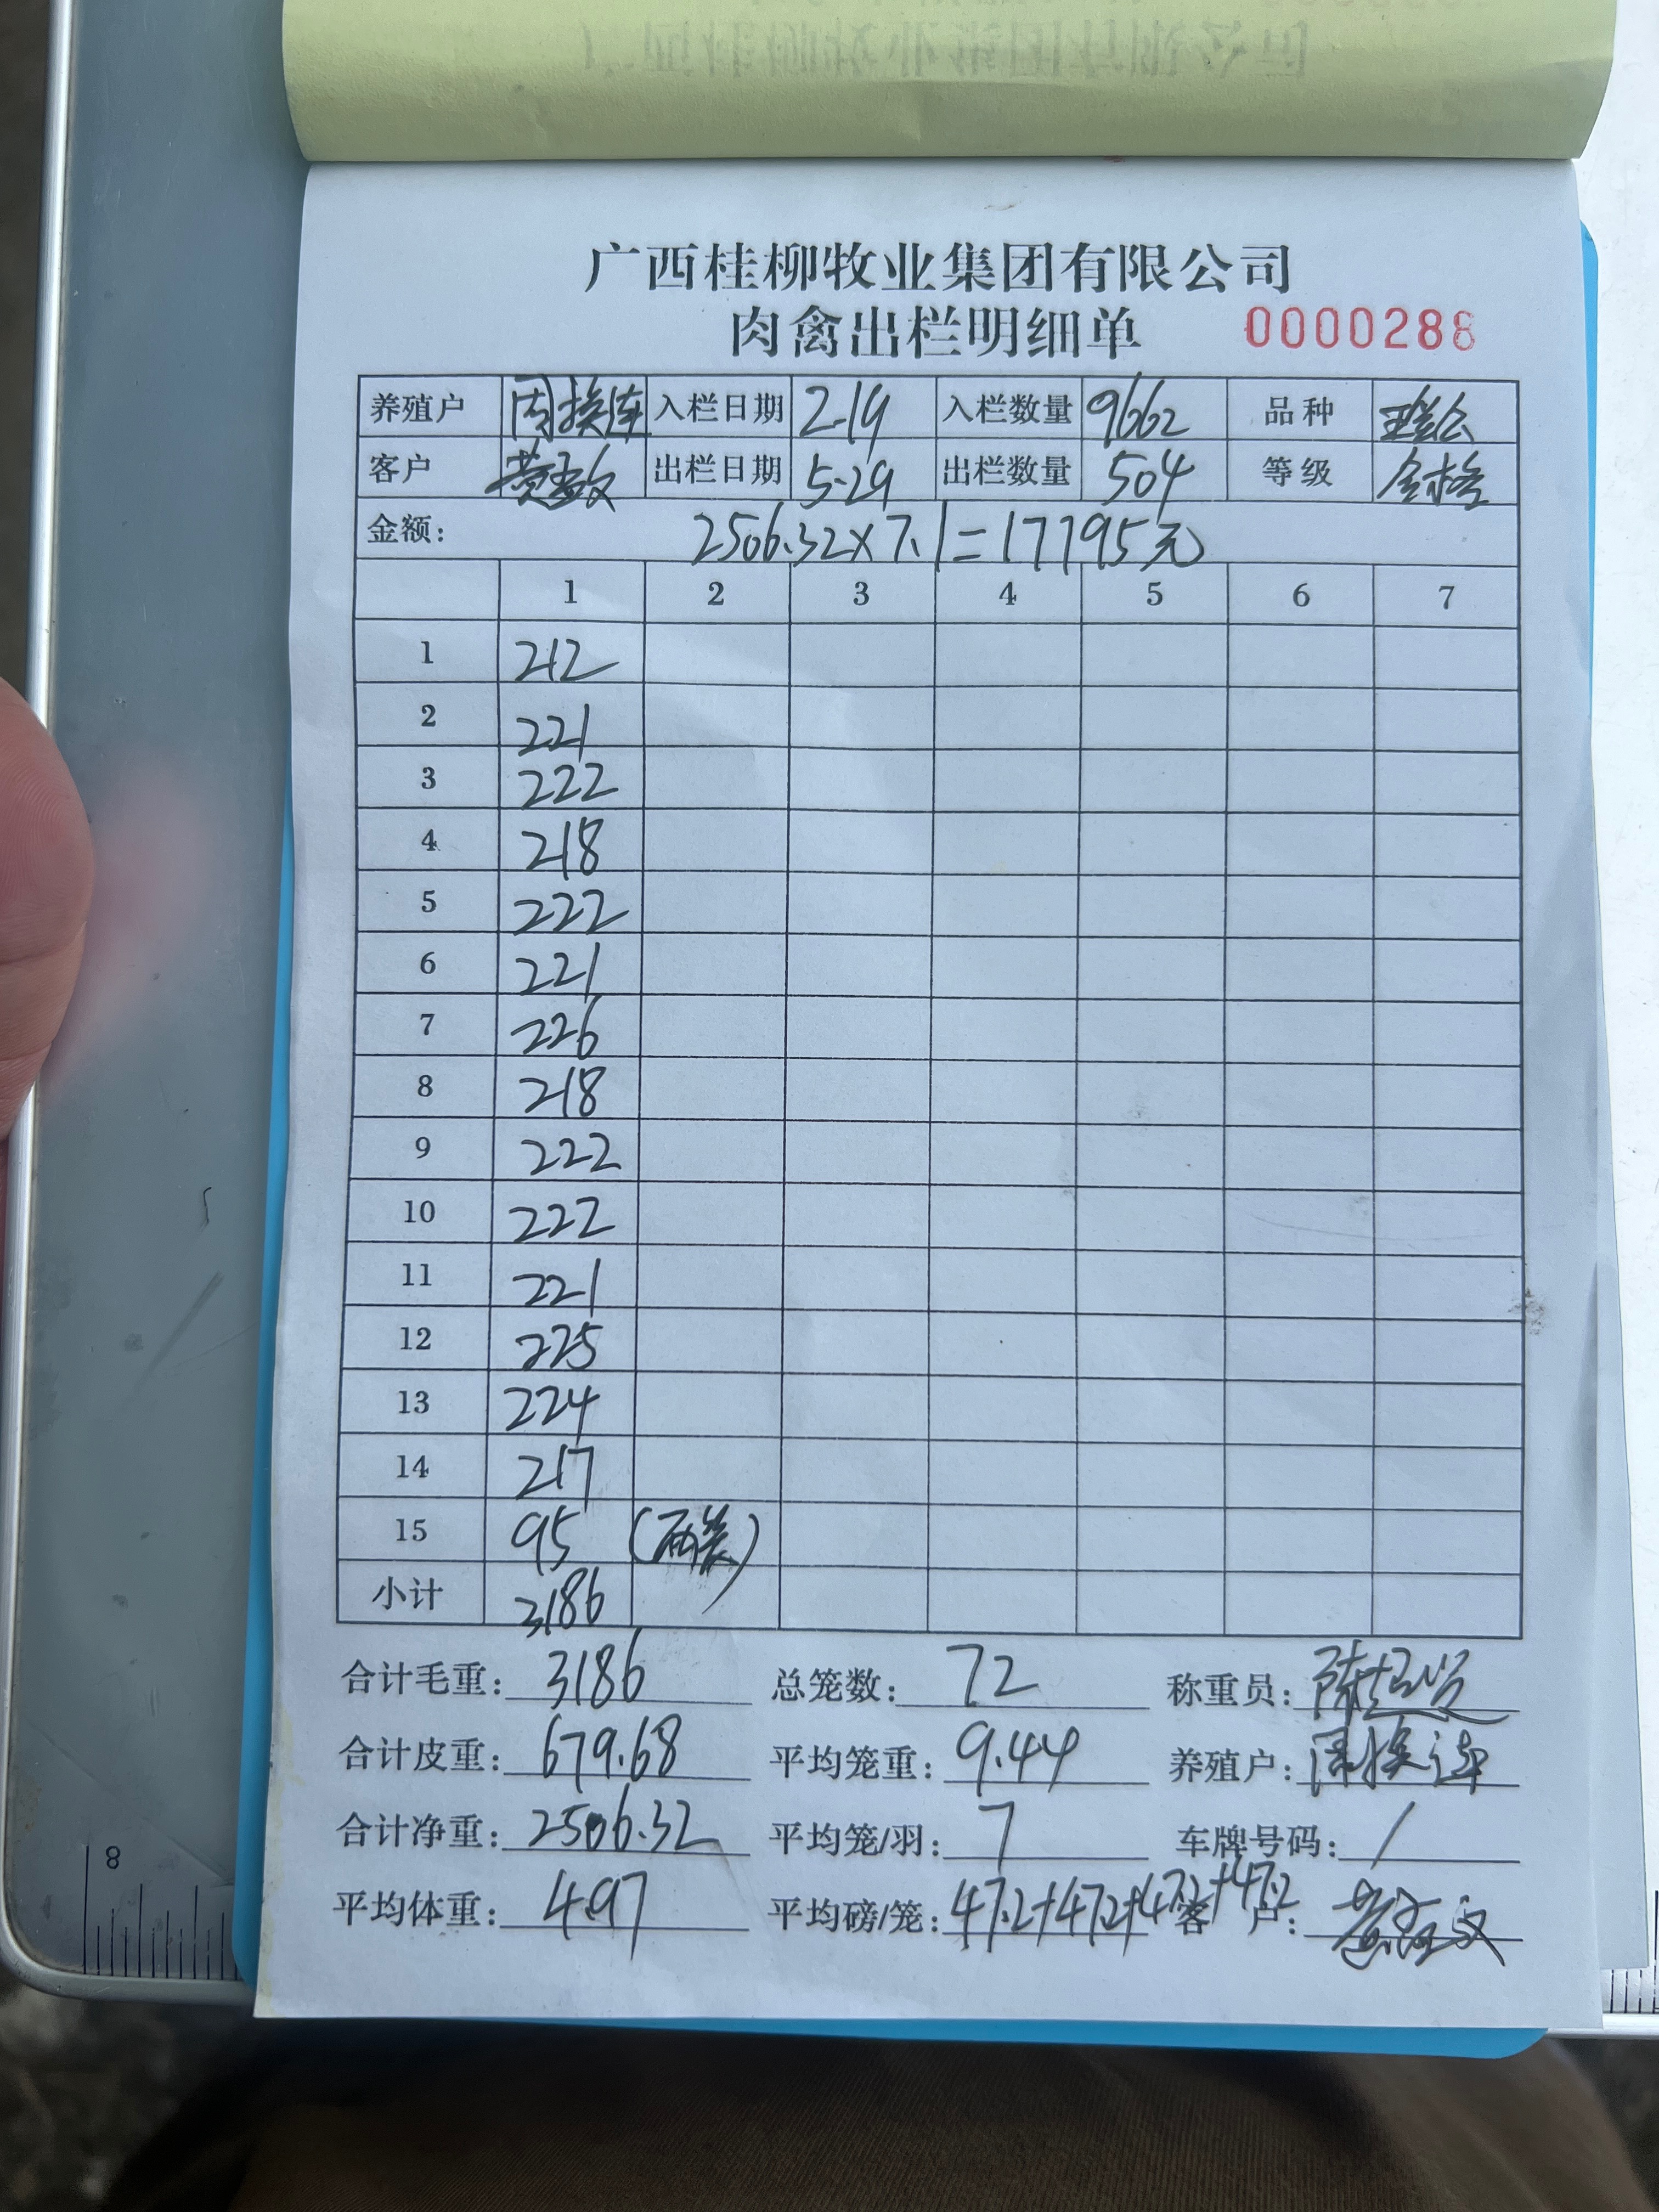 广西桂柳牧业集团有限公司
肉禽出栏明细单 0000288
养殖户 周换连 入栏日期 2.19 入栏数量 9662 品种
客户 出栏日期 5.29 出栏数量 504 等级 合格
金额: 2506.32×7.1=17795元
1 2 3 4 5 6 7
1 212
2 221
3 222
4 218
5 222
6 221
7 226
8 218
9 222
10 222
11 221
12 225
13 224
14 217
15 95 (两笼)
小计 3186
合计毛重: 3186 总笼数: 72 称重员:
合计皮重: 679.68 平均笼重: 9.44 养殖户: 周换连
合计净重: 2506.32 平均笼/羽: 7 车牌号码: /
平均体重: 4.97 平均磅/笼: 47.2+47.2+47.2+47.2 客户:
8